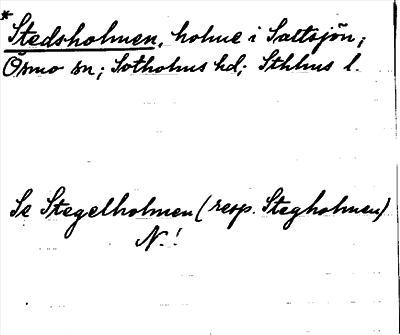 *Stedsholmen, holme i Saltsjön;
Ösmo sn; Sotholms hd; Sthlms l.
Se Stegelholmen (resp. Stegholmen)
N.!